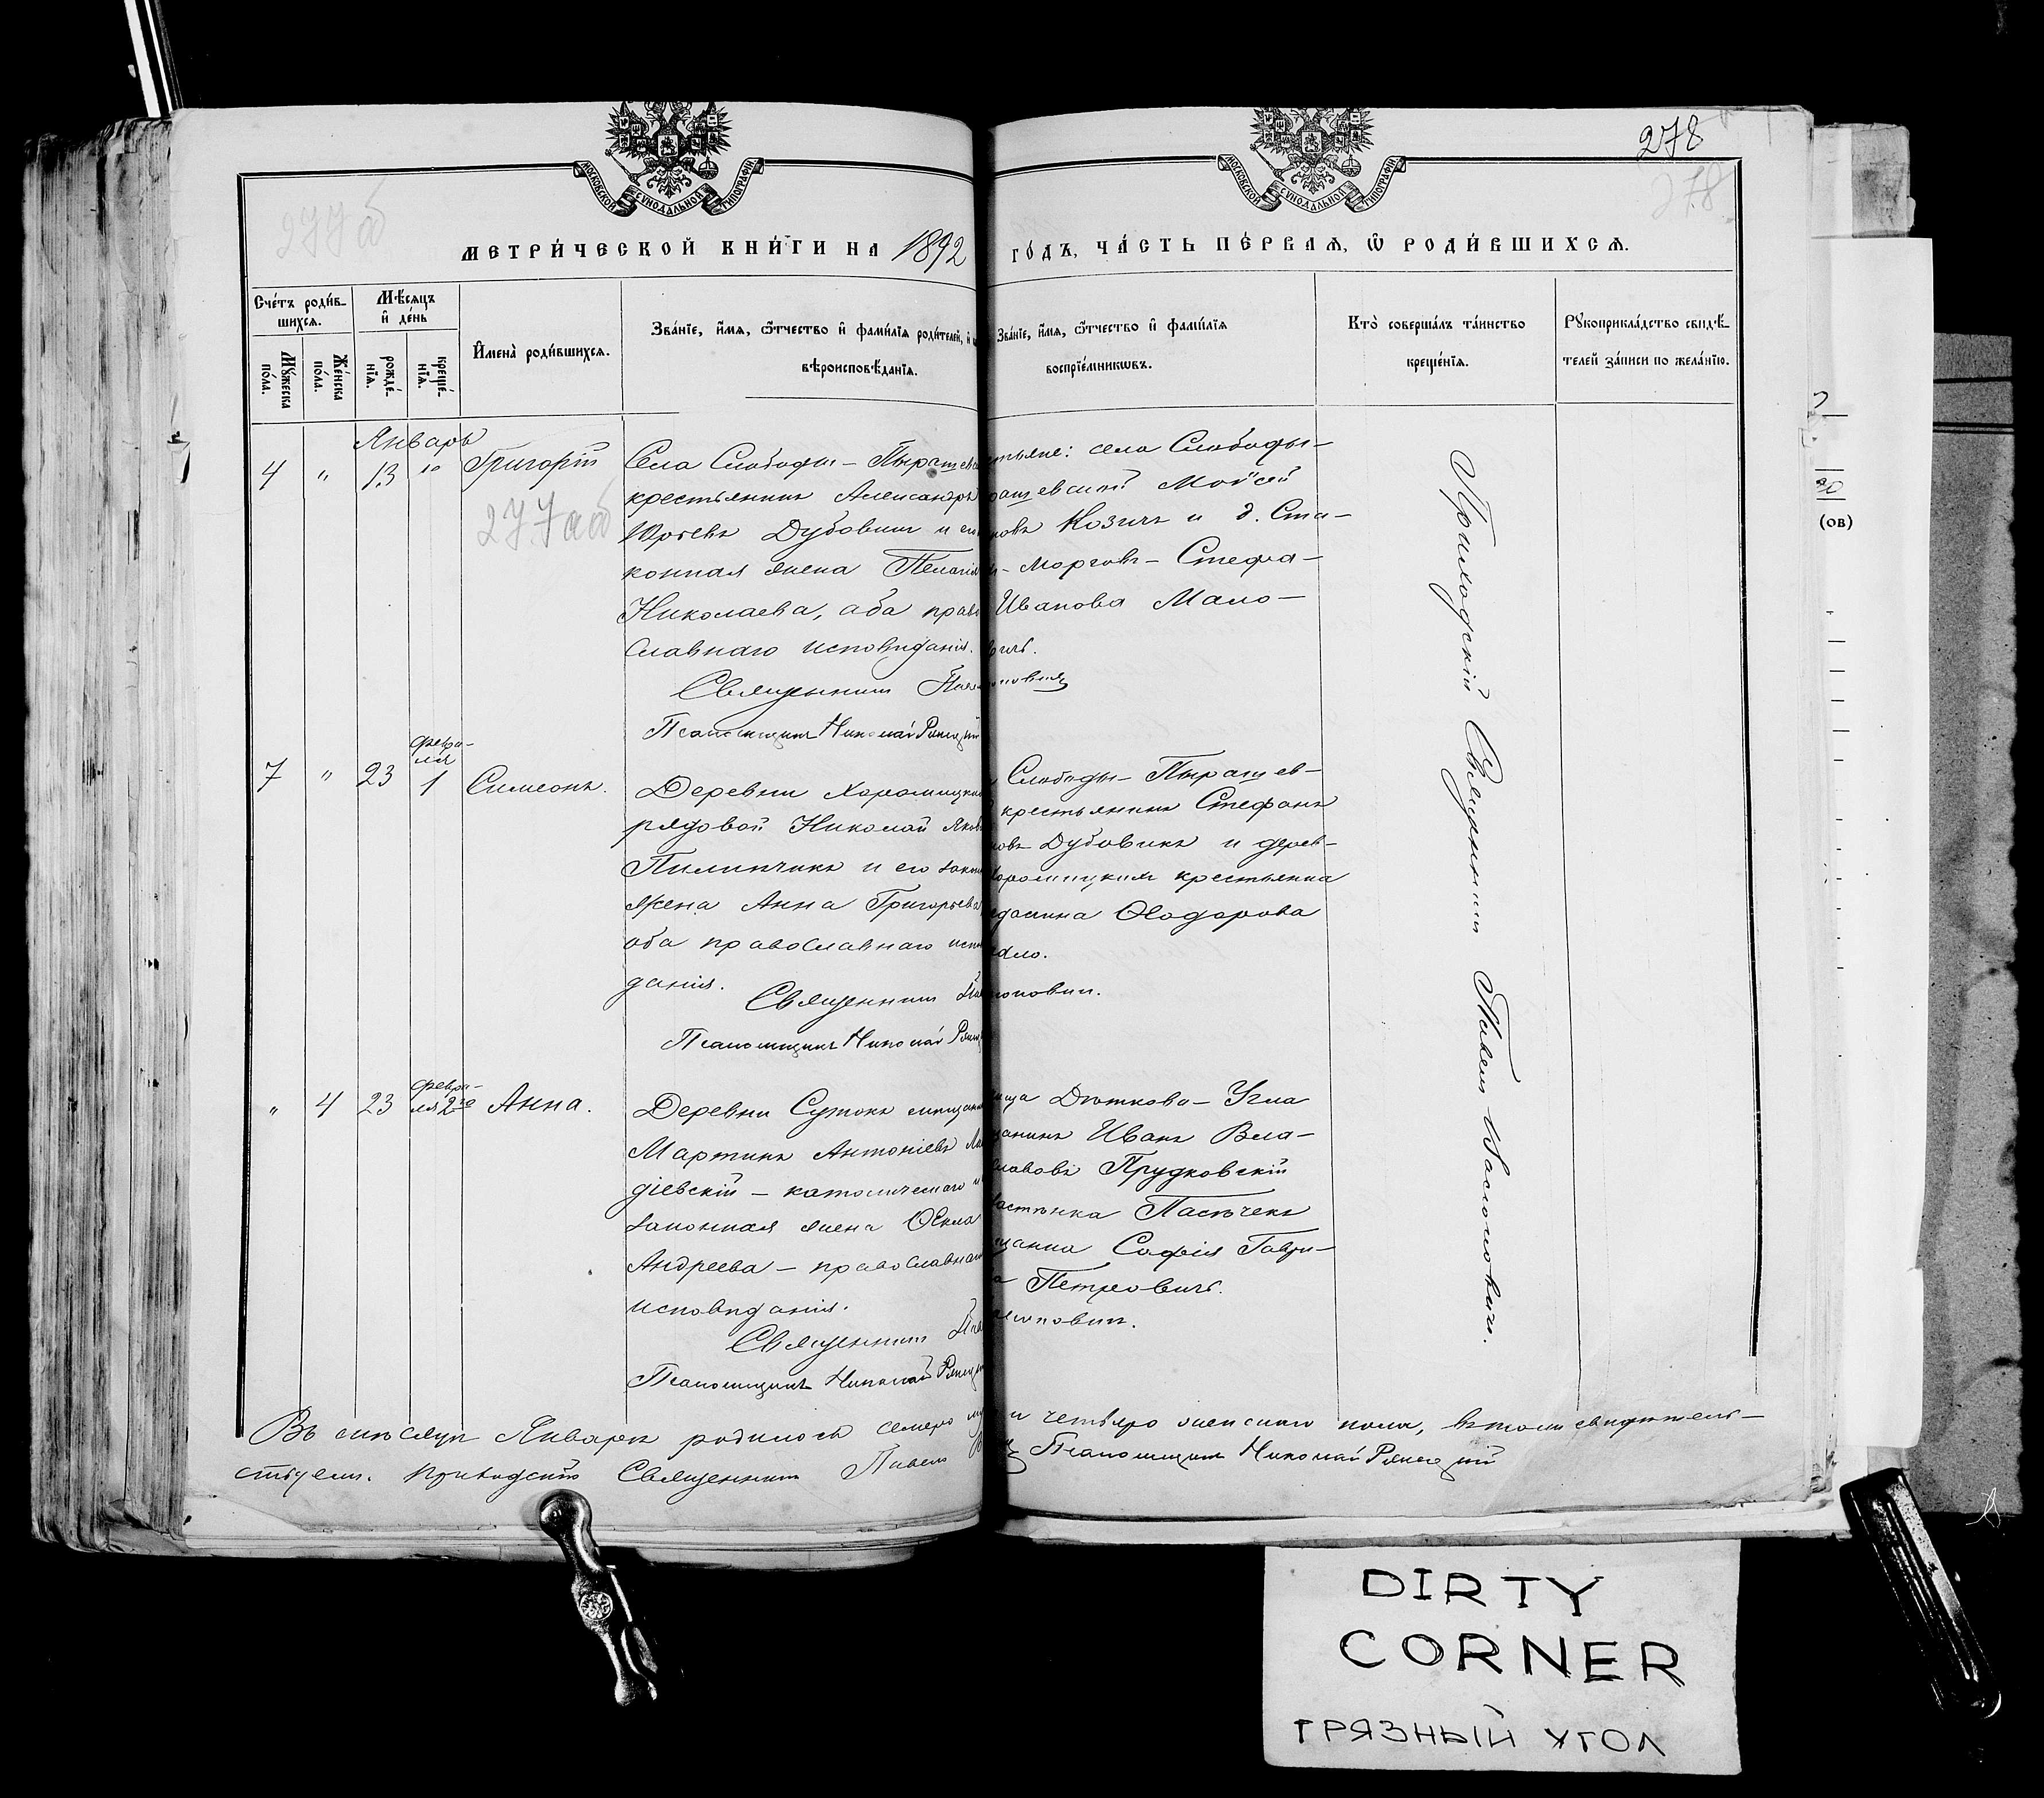 278
278
277 об
МОСКОВСКОЙ СѴНОДАЛЬНОЙ ТИПОГРАФІИ
МОСКОВСКОЙ СѴНОДАЛЬНОЙ ТИПОГРАФІИ
МЕТРИ́ЧЕСКОЙ КНИ́ГИ НА 1892 ГО́ДЪ, ЧА́СТЬ ПЕ́РВАѦ, Ѡ РОДИ́ВШИХСѦ.
Сче́тъ роди́в-
шихсѧ.
Мꙋ́жеска по́ла.
Же́нска по́ла.
Мѣ́сѧцъ и҆ де́нь
рожде́-
нїѧ.
креще́-
нїѧ.
И҆мена̀ роди́вшихсѧ.
Зва́нїе, и҆́мѧ, ѻ҆́тчество и҆ фами́лїѧ роди́телей, и҆
вѣроисповѣ́данїѧ.
Зва́нїе, и҆́мѧ, ѻ҆́тчество и҆ фами́лїѧ
воспрїе́мникѡвъ.
Кто̀ соверша́лъ та́инство
креще́нїѧ.
Рꙋкоприкла́дство свидѣ́-
телей за́писи по жела́нїю.
Январь
4 " 13 Григорій
277 об
Села Слободы-Пырашев
крестьянинъ Александръ
Юрьевъ Дубовикъ и его
конная жена Пелагія
Николаева, оба право
славнаго исповѣданія.
Священникъ
Псаломщикъ Николай
тьяне: села Слободы-
рашевской Мойсей
новъ Козичъ и д. Ста-
морговъ - Стефа-
Иванова Мало-
вичъ.
7 " 23 февра-
ля
1 Симеонъ.
Деревни Хоромицкихъ
рядовой Николай Яков
Пилипчикъ и его закон
жена Анна Григорьева
оба православнаго испо
данія.
Священникъ
Псаломщикъ Николай
Слободы-Пырашев-
крестьянинъ Стефанъ
новъ Дубовикъ и дерев-
Хоромицкихъ крестьянка
Ѳеодорова
" 4 23 февра-
ля 2го Анна.
Деревни Сутокъ мещан
Мартинъ Антоніевъ
діевскій - католическаго и
законная жена Ѳекла
Андреева - православнаго
исповѣданія.
Священникъ
Псаломщикъ Николай
Дѣткова-Угла
щанинъ Иванъ Вла-
славовъ Прудковскій
Пасѣчекъ
щанка Софія Гаври-
а Петровичъ.
Приходскій Священникъ Павелъ
Въ мѣсяцѣ Январѣ родилось семеро и четверо женскаго пола, въ томъ свидѣтель-
ствуемъ. Приходскій Священникъ Павелъ
Псаломщикъ Николай
(ов)
DIRTY
CORNER
ГРЯЗНЫЙ УГОЛ